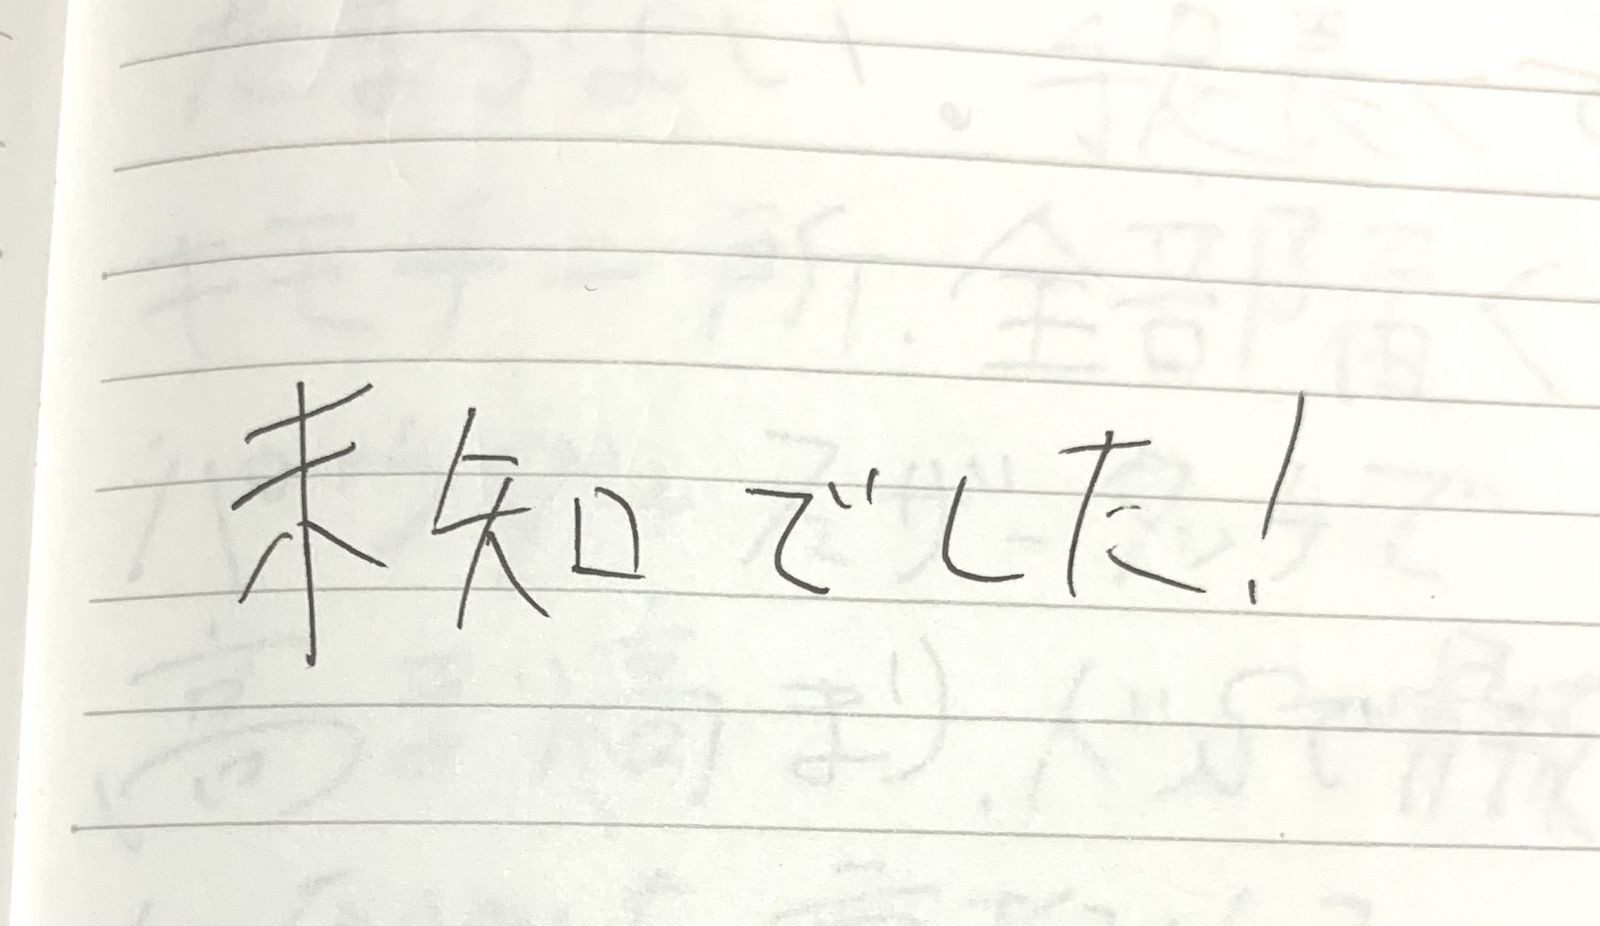 未知でした!